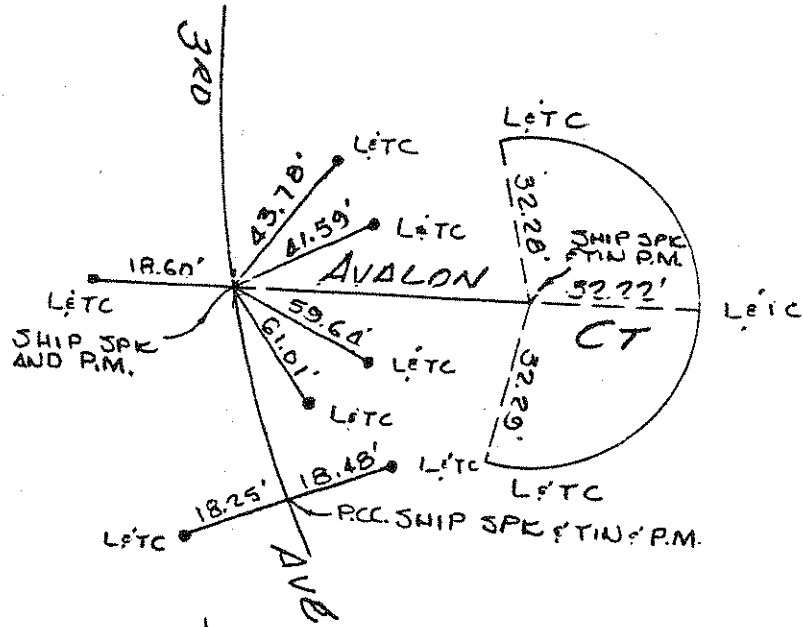 3RD
L&TC
43.78'
L&TC
41.59'
L&TC
32.28'
SHIP SPK
& TIN P.M.
18.60'
AVALON
32.22'
L&TC
L&TC
CT
SHIP SPK
AND P.M.
59.64'
L&TC
61.01'
L&TC
32.29'
18.48'
L&TC
L&TC
18.25'
L&TC
P.C.C. SHIP SPK & TIN & P.M.
AVE